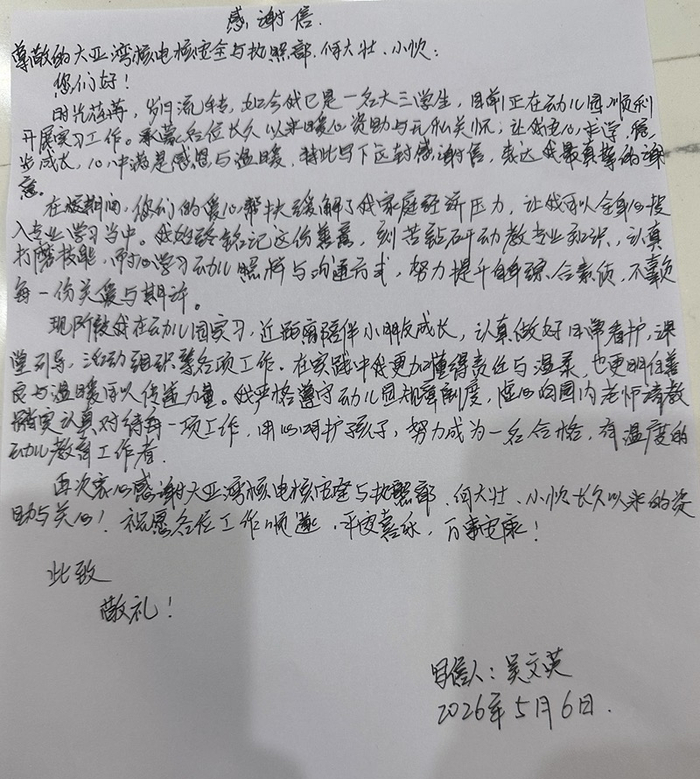 感谢信.
尊敬的大亚湾核电核安全与执照部、何大壮、小忺：
您们好！
时光荏苒，岁月流转，如今我已是一名大三学生，目前正在幼儿园顺利
开展实习工作。承蒙各位长久以来暖心资助与无私关怀，让我安心求学、稳
步成长，心中满是感恩与温暖，特此写下这封感谢信，表达我最真挚的谢
意。
在校期间，您们的爱心帮扶缓解了我家庭经济压力，让我可以全身心投
入专业学习当中。我始终铭记这份善意，刻苦钻研幼教专业知识、认真
打磨技能，耐心学习幼儿照料与沟通方式，努力提升自身综合素质，不辜负
每一份关爱与期许。
现阶段我在幼儿园实习，近距离陪伴小朋友成长，认真做好日常看护、课
堂引导、活动组织等各项工作。在实践中我更加懂得责任与温柔，也更明白善
良与温暖可以传递力量。我严格遵守幼儿园规章制度，虚心向园内老师请教
踏实认真对待每一项工作，用心呵护孩子，努力成为一名合格、有温度的
幼儿教育工作者.
再次衷心感谢大亚湾核电核安全与执照部、何大壮、小忺长久以来的资
助与关心！祝愿各位工作顺遂、平安喜乐，百事安康！
此致
敬礼！
写信人：吴文英
2026年5月6日.